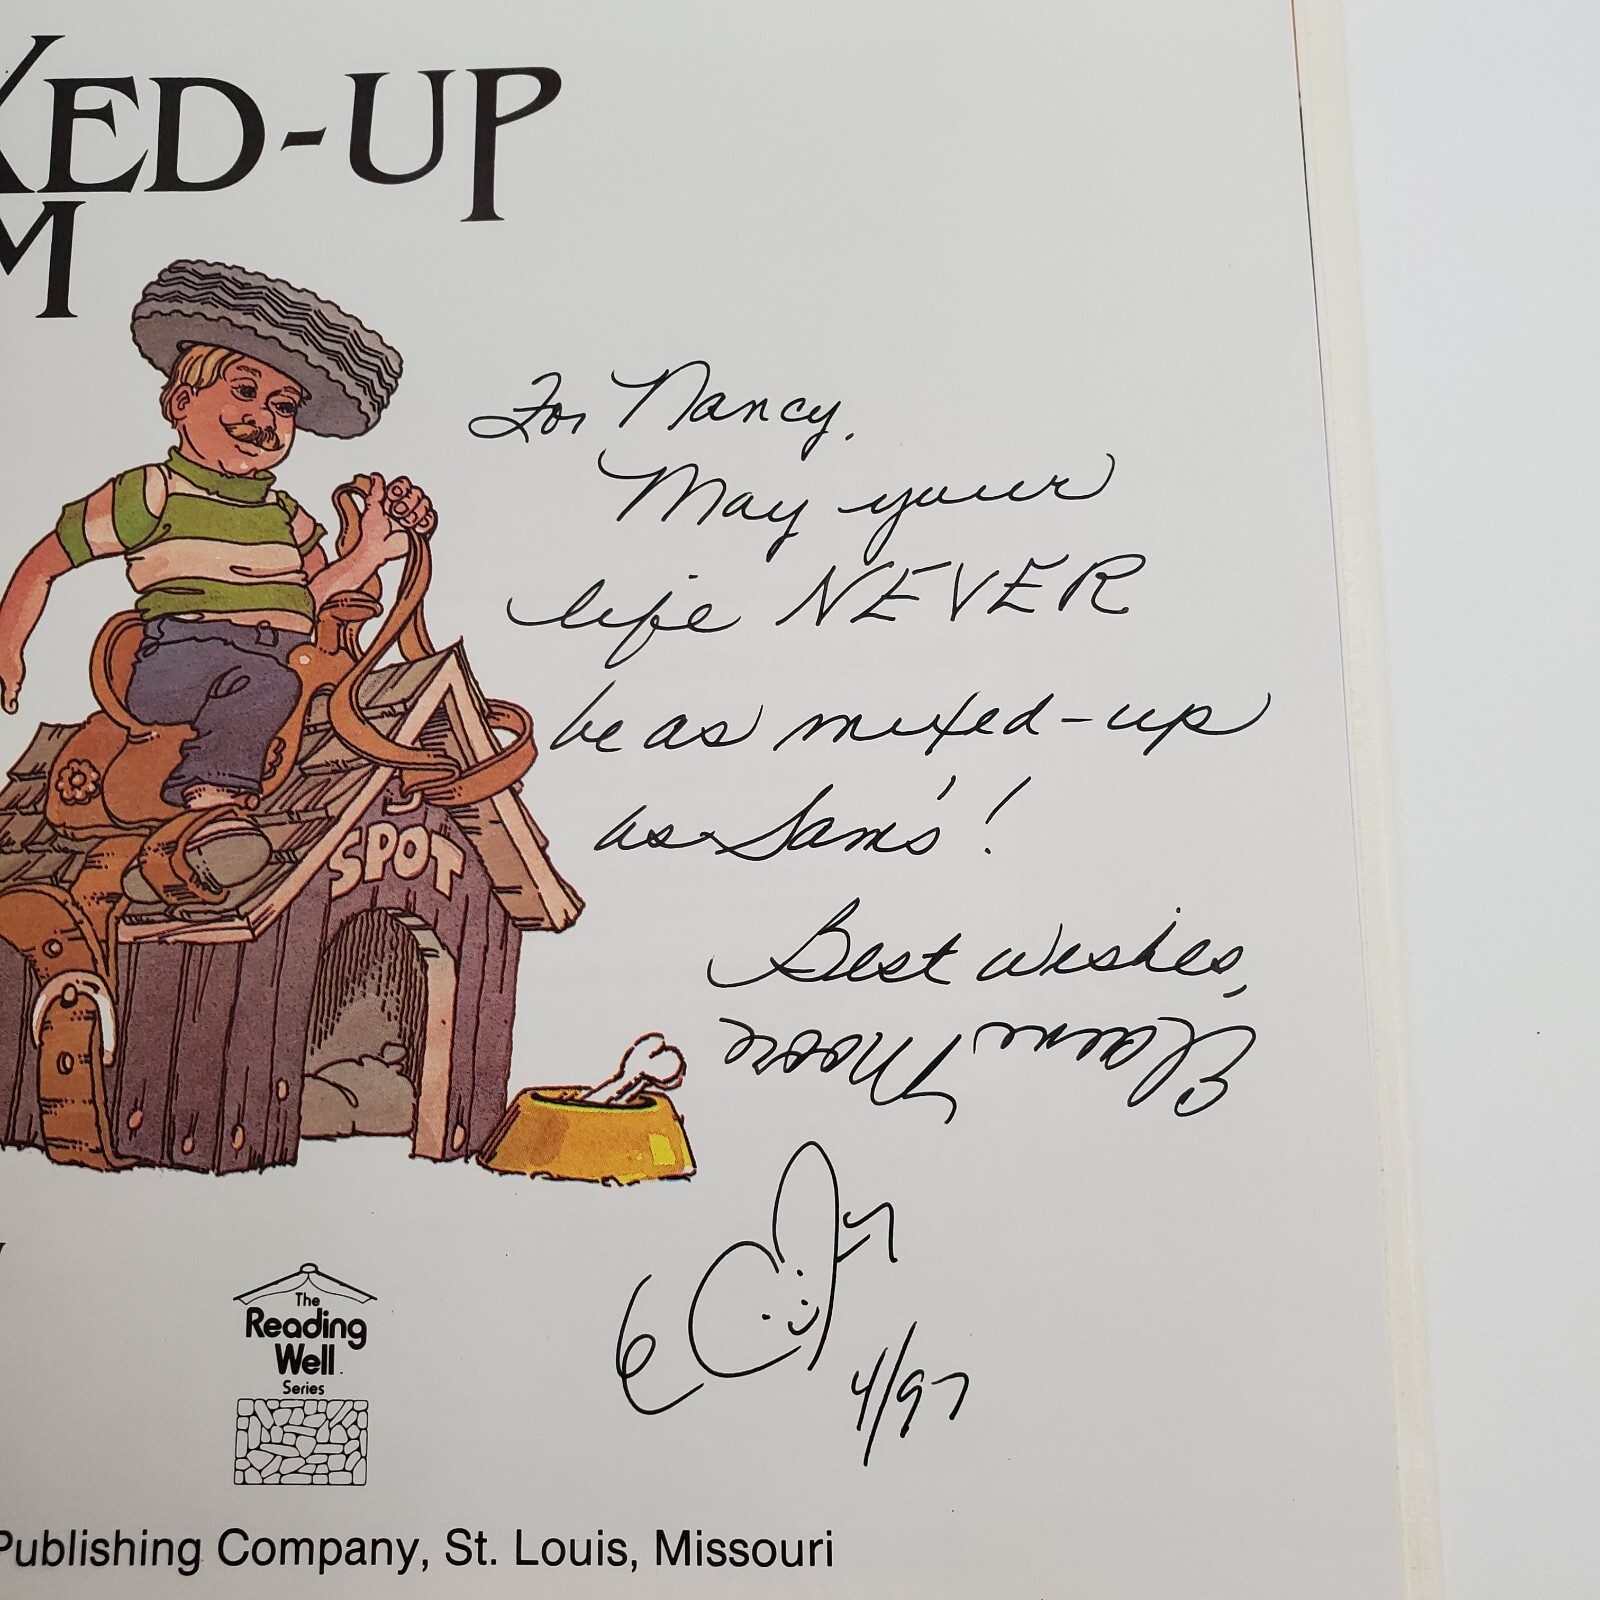 XED-UP
M
For Nancy,
May your
life NEVER
be as mixed-up
as Sam's!
SPOT
Best wishes,
Elaine Moore
4/97
The
Reading
Well
Series
Publishing Company, St. Louis, Missouri